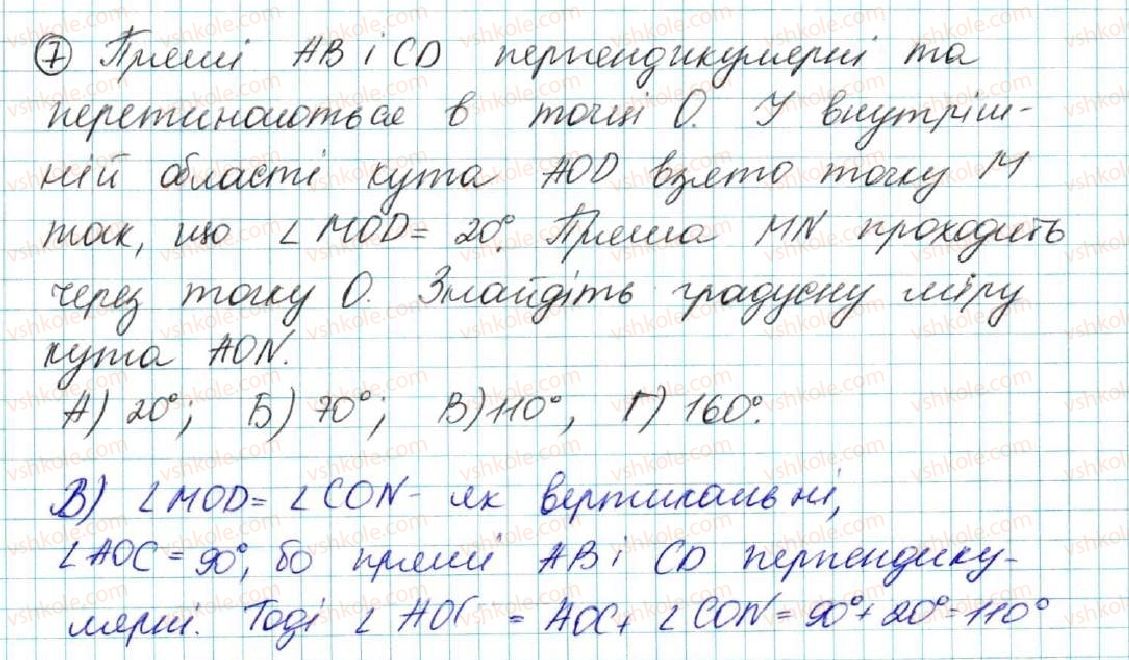 7 Прямі AB і CD перпендикулярні та
перетинаються в точці O. У внутріш-
ній області кута AOD взято точку M
так, що ∠ MOD = 20°. Пряма MN проходить
через точку O. Знайдіть градусну міру
кута AON.
А) 20°; Б) 70°; В) 110°, Г) 160°.
В) ∠ MOD = ∠ CON - як вертикальні,
∠ AOC = 90°, бо прямі AB і CD перпендику-
лярні. Тоді ∠ = AOC + ∠ CON = 90° + 20° = 110°